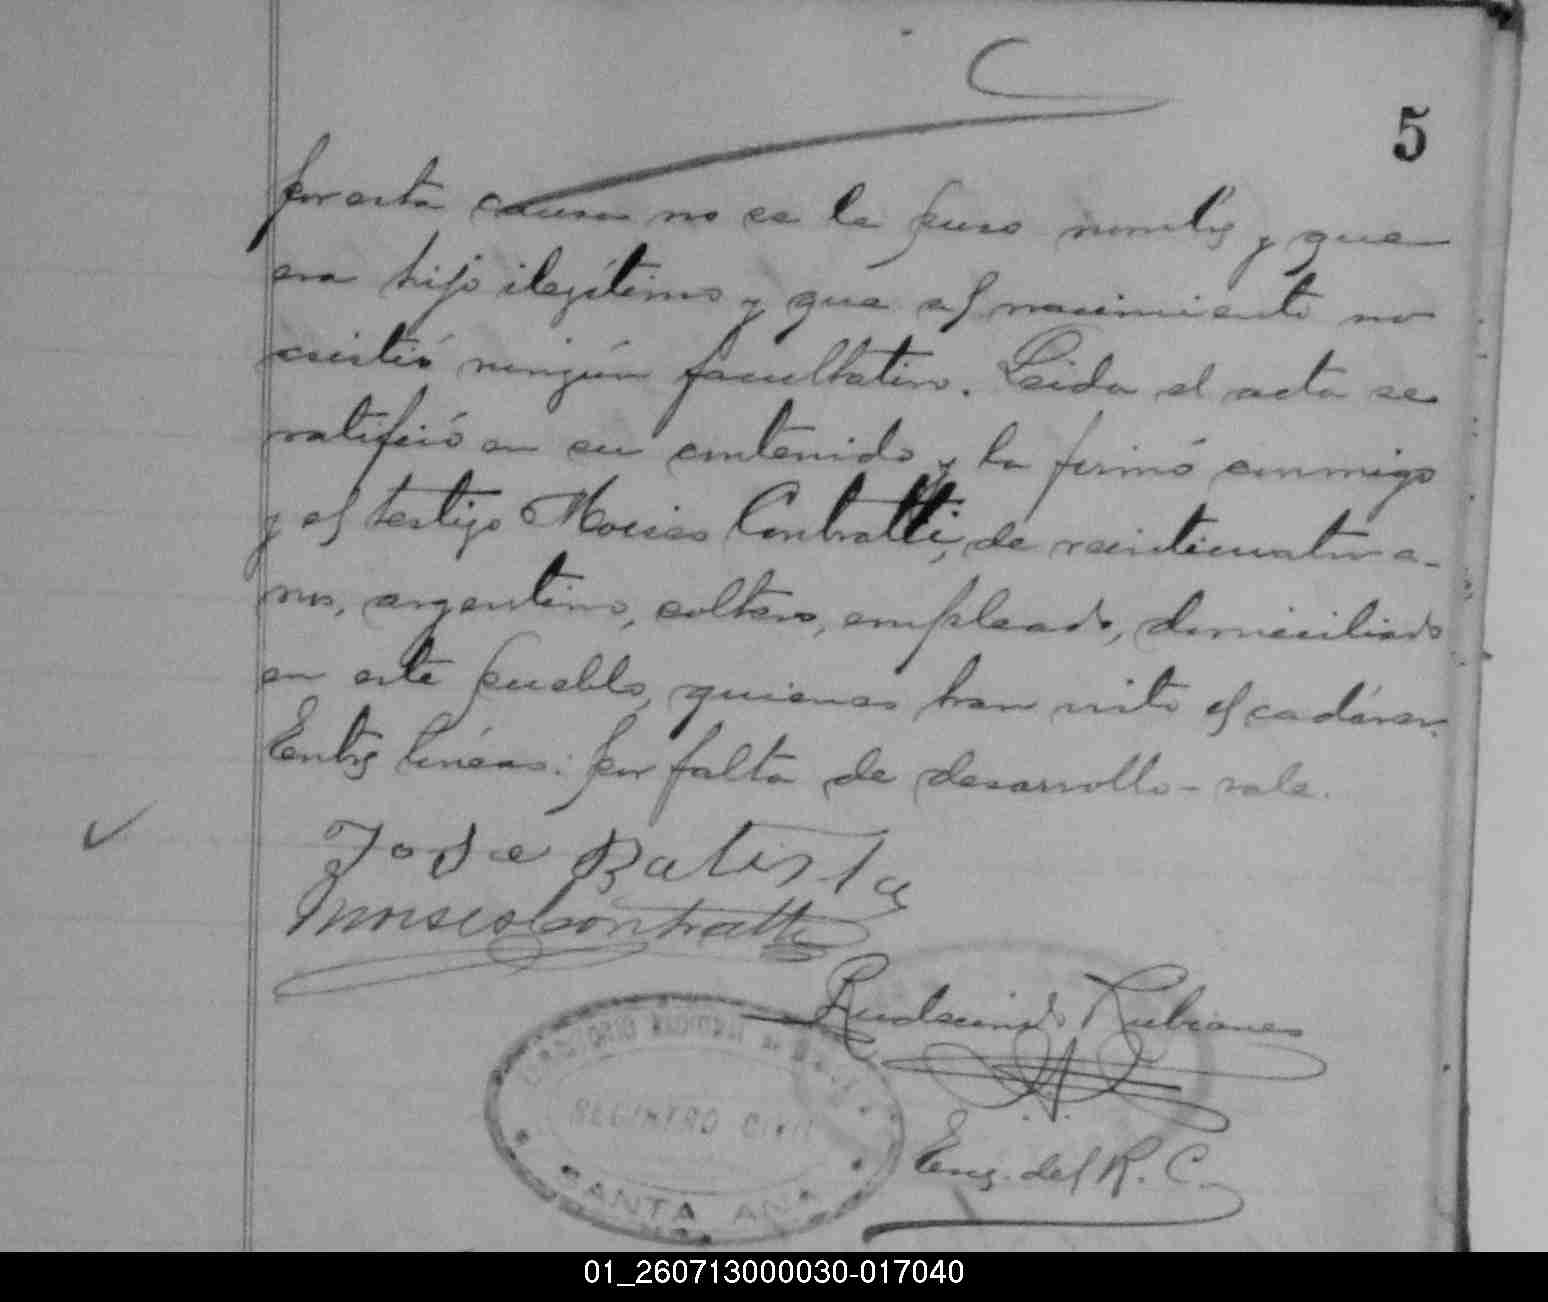 5
por esta causa no se le puso nombre y que
era hijo ilegítimo y que al nacimiento no
asistió ningún facultativo. Leida el acta se
ratificó en su contenido y la firmó conmigo
y el testigo Moises Contratti, de veinticuatro a-
nos, argentino, soltero, empleado, domiciliado
en este pueblo, quienes han visto el cadáver.
Entre líneas: por falta de desarrollo - vale.
José Batista
Moises Contratti
Rudecindo Rubianes
Enc. del R. C.
REGISTRO CIVIL
SANTA ANA
01_260713000030-017040